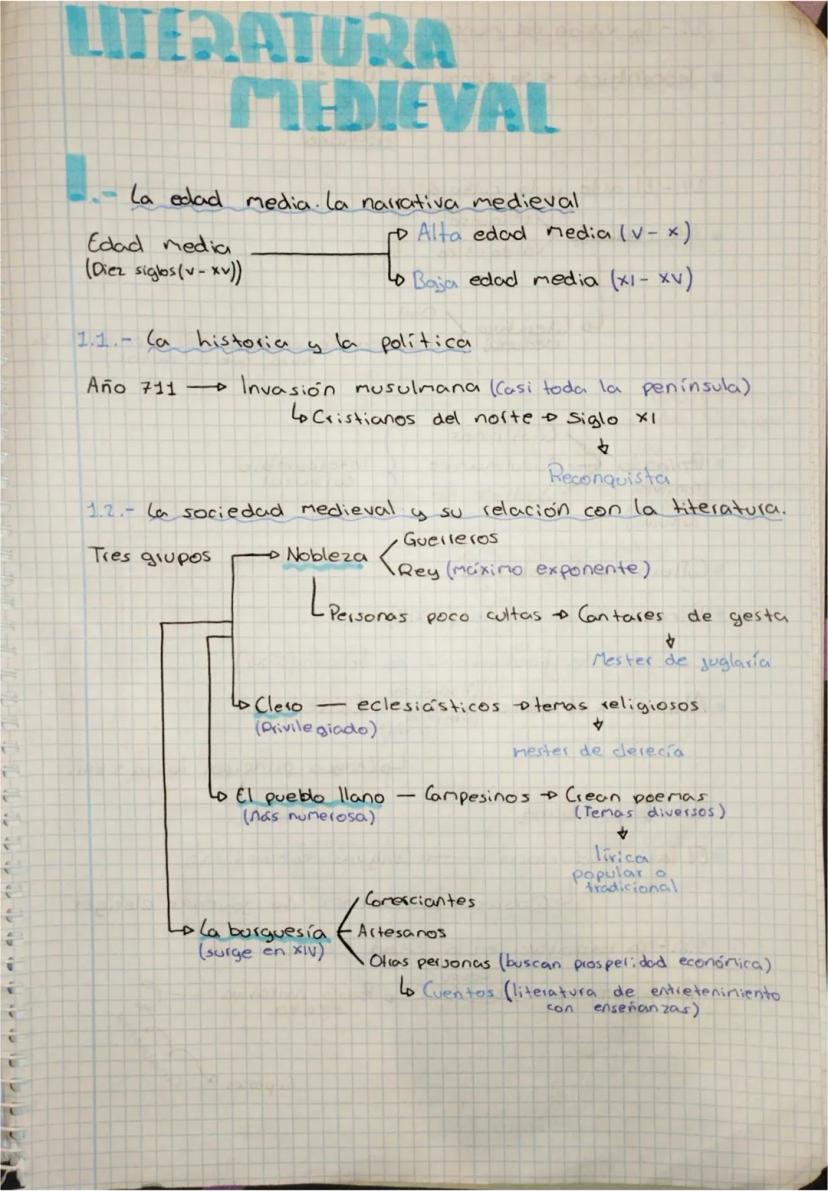 LITERATURA
MEDIEVAL
1.- La edad media. La narrativa medieval
Edad media
(Diez siglos (V - XV))
Alta edad media (V - X)
Baja edad media (XI - XV)
1.1.- La historia y la política
Año 711 → Invasión musulmana (Casi toda la península)
↳ Cristianos del norte → Siglo XI
↓
Reconquista
1.2.- La sociedad medieval y su relación con la literatura.
Tres grupos → Nobleza
Guerreros
Rey (máximo exponente)
Personas poco cultas → Cantares de gesta
↓
Mester de juglaría
Clero — eclesiásticos → temas religiosos
(Privilegiado) ↓
mester de clerecía
El pueblo llano — Campesinos → Crean poemas
(Más numerosa) (Temas diversos)
↓
lírica
popular o
tradicional
La burguesía
(surge en XIV)
Comerciantes
Artesanos
Otras personas (buscan prosperidad económica)
↳ Cuentos (literatura de entretenimiento
con enseñanzas)